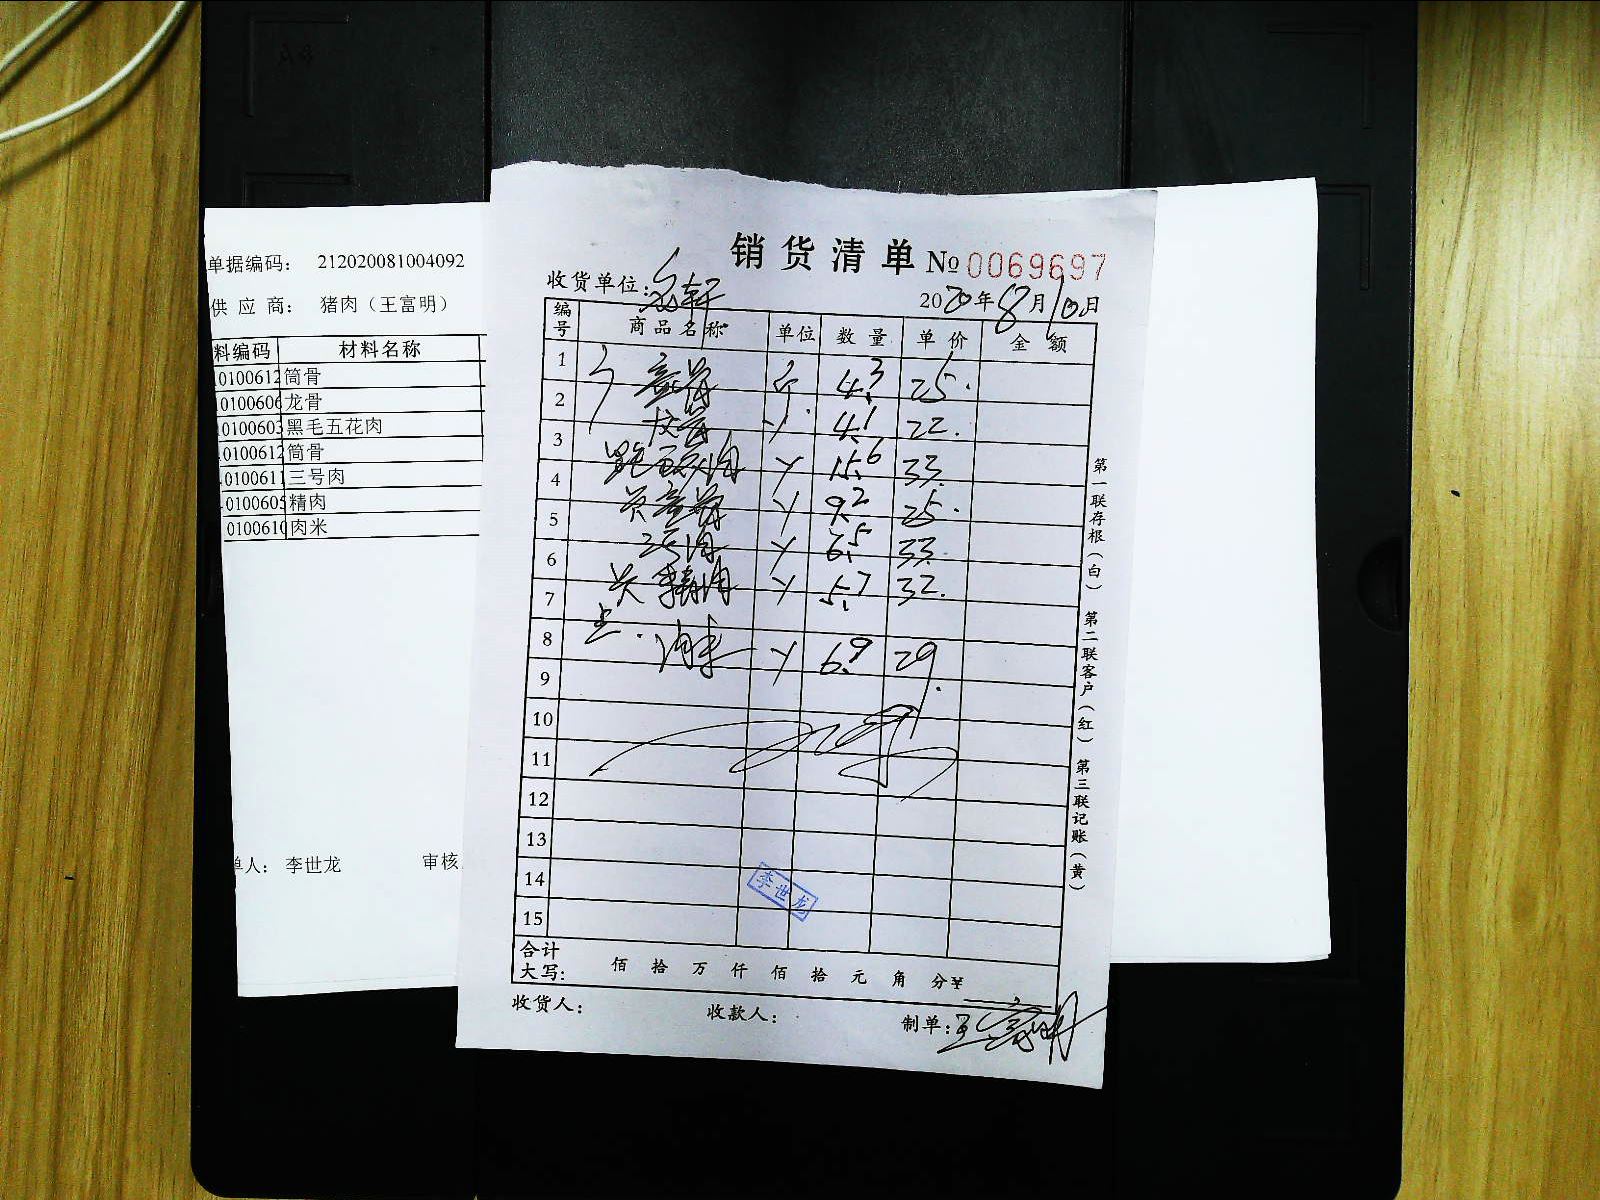 单据编码： 212020081004092
供 应 商： 猪肉（王富明）
料编码 材料名称
0100612 筒骨
0100606 龙骨
0100603 黑毛五花肉
0100612 筒骨
0100611 三号肉
0100605 精肉
0100610 肉米
单人： 李世龙 审核
销货清单 № 0069697
收货单位：
2020年8月10日
编号 商品名称 单位 数量 单价 金额
1 4.3 25.
2 4.1 22.
3 15.6 33.
4 9.2 25.
5 6.5 33.
6 精肉 5.7 32.
7
8 肉米 6.9 29.
9
10
11
12
13
14
15
李世龙
合计
大写： 佰 拾 万 仟 佰 拾 元 角 分 ¥
收货人： 收款人： 制单：王富明
第一联存根（白） 第二联客户（红） 第三联记账（黄）